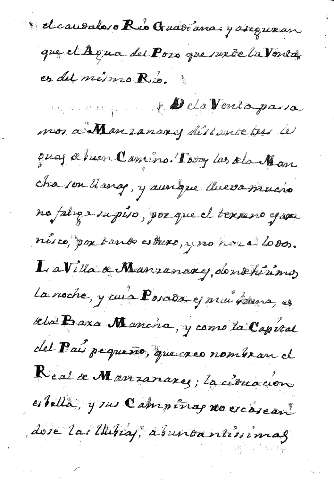 el caudaloso Rio Guadiana: y aseguran
que el Agua del Pozo que surte la Venta
es del mismo Rio.
De la Venta pasa
mos a Manzanares distante tres le
guas de buen Camino. Todas las de la Man
cha son llanas, y aunque llueva mucho
no fatiga su piso, por que el terreno es are
nisco, por tando estuvo, y no hace lodos.
La Villa de Manzanares, donde hicimos
la noche, y cuia Posada es mui buena, es
de la Baxa Mancha, y como la Capital
del Pais pequeño, que creo nombran el
Real de Manzanares; la cituacion
es bella, y sus Campiñas no escasean
dose las llubias, abundantissimas